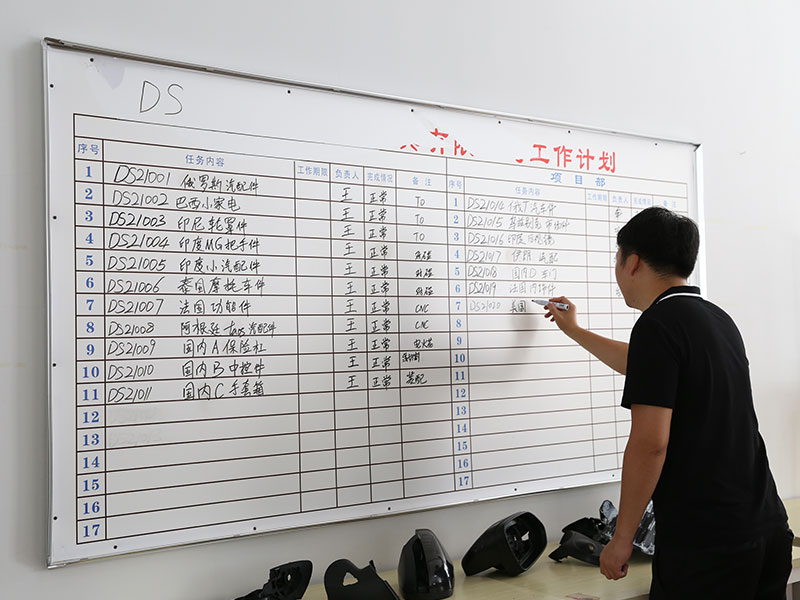 DS
工作计划
项目部
序号 任务内容 工作期限 负责人 完成情况 备注
1 DS21001 俄罗斯汽配件 王 正常 TO
2 DS21002 巴西小家电 王 正常 TO
3 DS21003 印尼轮罩件 王 正常 TO
4 DS21004 印度MG把手件 王 正常
5 DS21005 印度小汽配件 王 正常
6 DS21006 泰国摩托车件 王 正常
7 DS21007 法国功能件 王 正常 CNC
8 DS21008 阿根廷 taos汽配件 王 正常 CNC
9 DS21009 国内A保险杠 王 正常
10 DS21010 国内B中控件 王 正常
11 DS21011 国内C手套箱 王 正常 装配
12
13
14
15
16
17
序号 任务内容 工作期限 负责人 完成情况 备注
1 DS21014
2 DS21015
3 DS21016 印度
4 DS21017 伊朗
5 DS21018 国内D车门
6 DS21019 法国
7 DS21020 美国
8
9
10
11
12
13
14
15
16
17